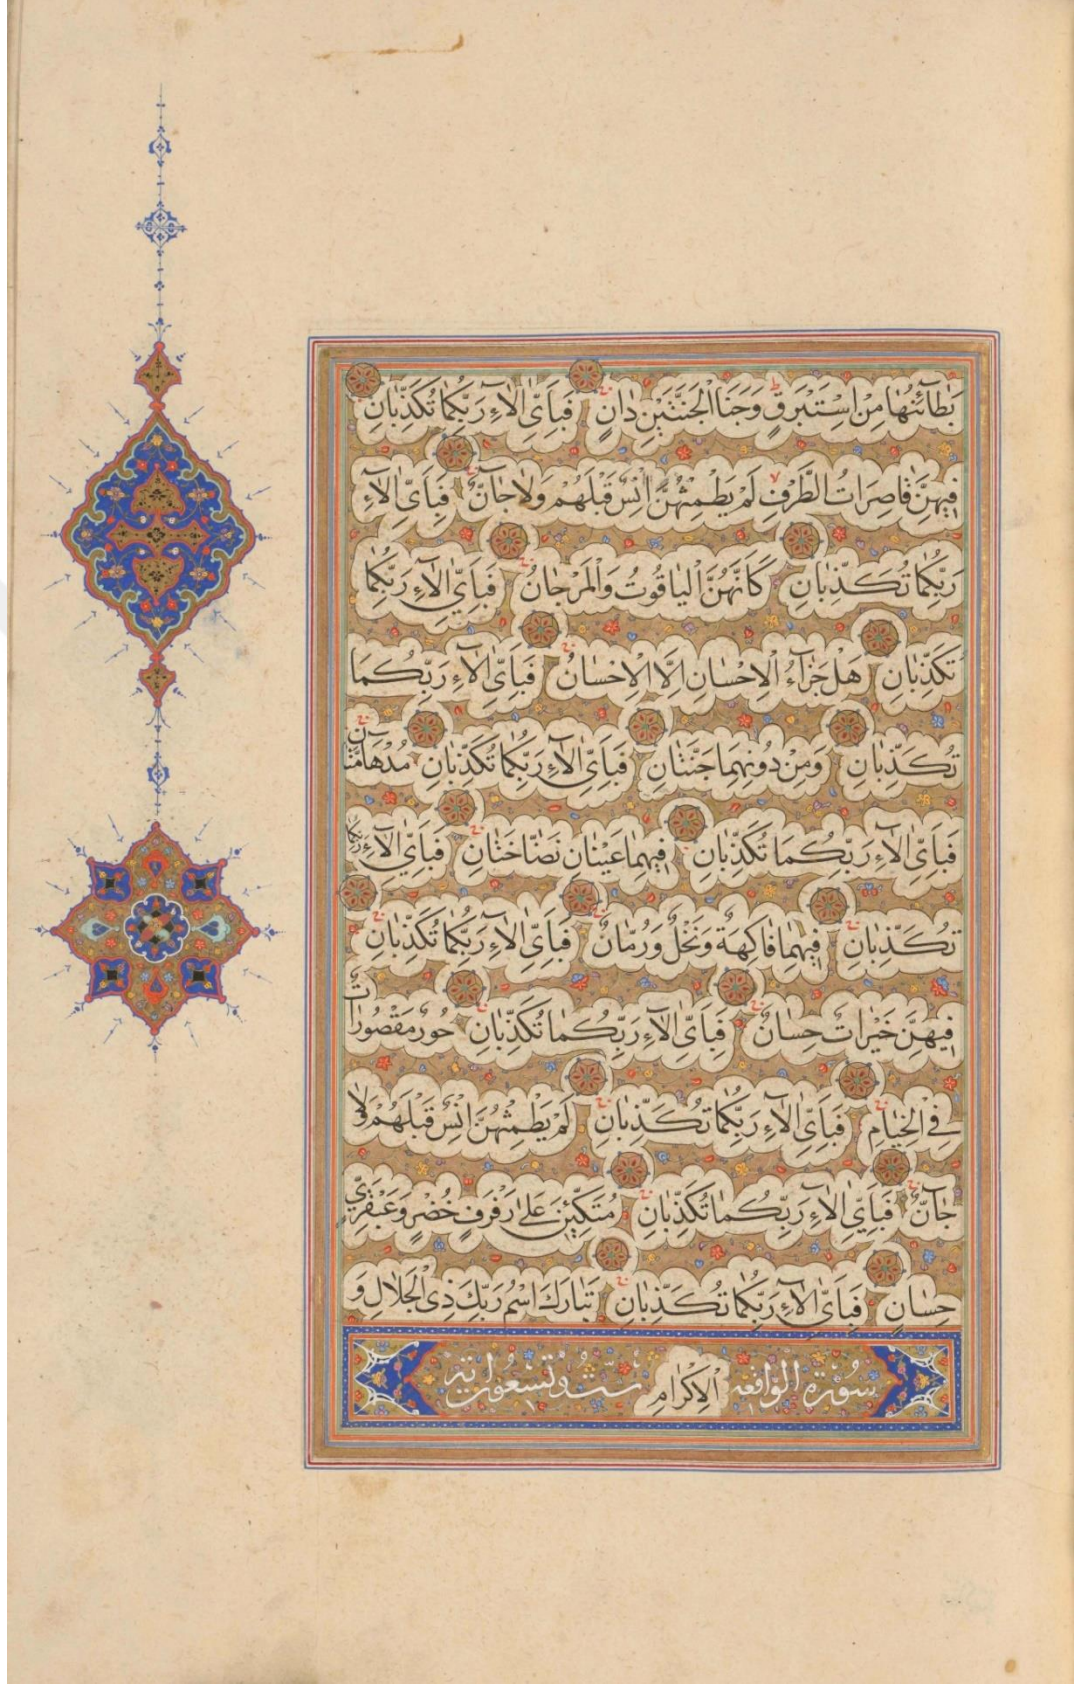 بَطَآئِنُهَا مِنْ اِسْتَبْرَقٍ وَجَنَا الْجَنَّتَيْنِ دَانٍ فَبِاَيِّ اٰلَآءِ رَبِّكُمَا تُكَذِّبَانِ
فِيهِنَّ قَاصِرَاتُ الطَّرْفِ لَمْ يَطْمِثْهُنَّ اِنْسٌ قَبْلَهُمْ وَلَا جَآنٌّ فَبِاَيِّ اٰلَآءِ
رَبِّكُمَا تُكَذِّبَانِ كَاَنَّهُنَّ الْيَاقُوتُ وَالْمَرْجَانُ فَبِاَيِّ اٰلَآءِ رَبِّكُمَا
تُكَذِّبَانِ هَلْ جَزَآءُ الْاِحْسَانِ اِلَّا الْاِحْسَانُ فَبِاَيِّ اٰلَآءِ رَبِّكُمَا
تُكَذِّبَانِ وَمِنْ دُونِهِمَا جَنَّتَانِ فَبِاَيِّ اٰلَآءِ رَبِّكُمَا تُكَذِّبَانِ مُدْهَآمَّتَانِ
فَبِاَيِّ اٰلَآءِ رَبِّكُمَا تُكَذِّبَانِ فِيهِمَا عَيْنَانِ نَضَّاخَتَانِ فَبِاَيِّ اٰلَآءِ رَبِّكُمَا
تُكَذِّبَانِ فِيهِمَا فَاكِهَةٌ وَنَخْلٌ وَرُمَّانٌ فَبِاَيِّ اٰلَآءِ رَبِّكُمَا تُكَذِّبَانِ
فِيهِنَّ خَيْرَاتٌ حِسَانٌ فَبِاَيِّ اٰلَآءِ رَبِّكُمَا تُكَذِّبَانِ حُورٌ مَقْصُورَاتٌ
فِي الْخِيَامِ فَبِاَيِّ اٰلَآءِ رَبِّكُمَا تُكَذِّبَانِ لَمْ يَطْمِثْهُنَّ اِنْسٌ قَبْلَهُمْ وَلَا
جَآنٌّ فَبِاَيِّ اٰلَآءِ رَبِّكُمَا تُكَذِّبَانِ مُتَّكِئِينَ عَلٰى رَفْرَفٍ خُضْرٍ وَعَبْقَرِيٍّ
حِسَانٍ فَبِاَيِّ اٰلَآءِ رَبِّكُمَا تُكَذِّبَانِ تَبَارَكَ اسْمُ رَبِّكَ ذِي الْجَلَالِ وَ
سورة الواقعة الْاِكْرَامِ ست وتسعون اية